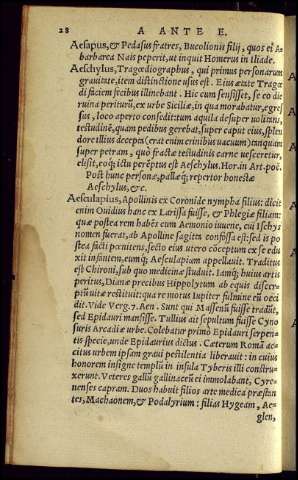 28 A ANTE E.
Aesapus, & Pedasus fratres, Bucolionis filij, quos ei A-
barbarea Nais peperit, ut inquit Homerus in Iliade.
Aeschylus, Tragœdiographus, qui primus personarum
grauitate, item distinctione usus est. Eius ætate Tragœ-
di faciem fecibus illinebant. Hic cum sensisset, se eo die
ruina periturū, ex urbe Siciliæ, in qua morabatur, egres-
sus, loco aperto consedit: tum aquila desuper uolitans,
testudinē, quam pedibus gerebat, super caput eius, splen
dore illius deceptus (erat enim crinibus uacuum) tanquam
super petram, quò fractæ testudinis carne uesceretur,
elisit, eoq; ictu peremptus est Aeschylus. Hor. in Art. poë.
Post hunc personæ, pallæq; repertor honestæ
Aeschylus, &c.
Aesculapius, Apollinis ex Coronide nympha filius: dicit
enim Ouidius hanc ex Larissa fuisse, & Phlegiæ filiam:
quæ postea rem habēs cum Aemonio iuuene, cui Ischys
nomen fuerat, ab Apolline sagittis confossa est: sed is po
stea facti pœnitens, secto eius utero cōceptum ex se edu
xit infantem, eumq; Aesculapium appellauit. Traditus
est Chironi, sub quo medicinæ studuit. Iamq; huius artis
peritus, Dianæ precibus Hippolytum ab equis discer-
ptū uitæ restituit: qua re motus Iupiter fulmine eū occi
dit. Vide Verg. 7. Aen. Sunt qui Messenū fuisse tradūt,
sed Epidauri mansisse. Tullius ait sepultum fuisse Cyno
suris Arcadiæ urbe. Colebatur primo Epidauri serpen-
tis specie, unde Epidaurius dictus. Cæterum Romā ac-
citus urbem ipsam graui pestilentia liberauit: in cuius
honorem insigne templū in insula Tyberis illi constru-
xerunt. Veteres gallū gallinaceū ei immolabant, Cyre-
nenses capram. Duos habuit filios arte medica præstan
tes, Machaonem, & Podalyrium: filias Hygeam, Ae-
glen,